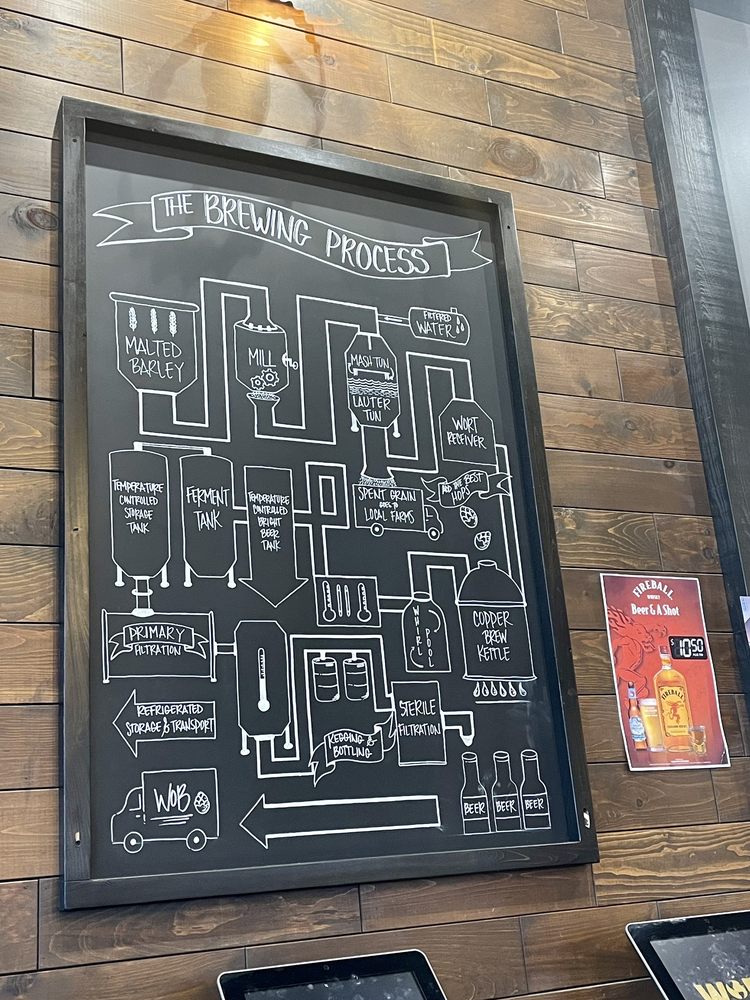 THE BREWING PROCESS
MALTED
BARLEY
MILL
FILTERED
WATER
MASH TUN
LAUTER
TUN
WORT
RECEIVER
TEMPERATURE
CONTROLLED
STORAGE
TANK
FERMENT
TANK
TEMPERATURE
CONTROLLED
BRIGHT
BEER
TANK
SPENT GRAIN
GOES TO
LOCAL FARMS
ADD THE BEST
HOPS
WHIRL
POOL
COPPER
BREW
KETTLE
PRIMARY
FILTRATION
REFRIGERATED
STORAGE & TRANSPORT
KEGGING &
BOTTLING
STERILE
FILTRATION
WOB
BEER
BEER
BEER
FIREBALL
WHISKY
Beer & A Shot
$10.50
FIREBALL